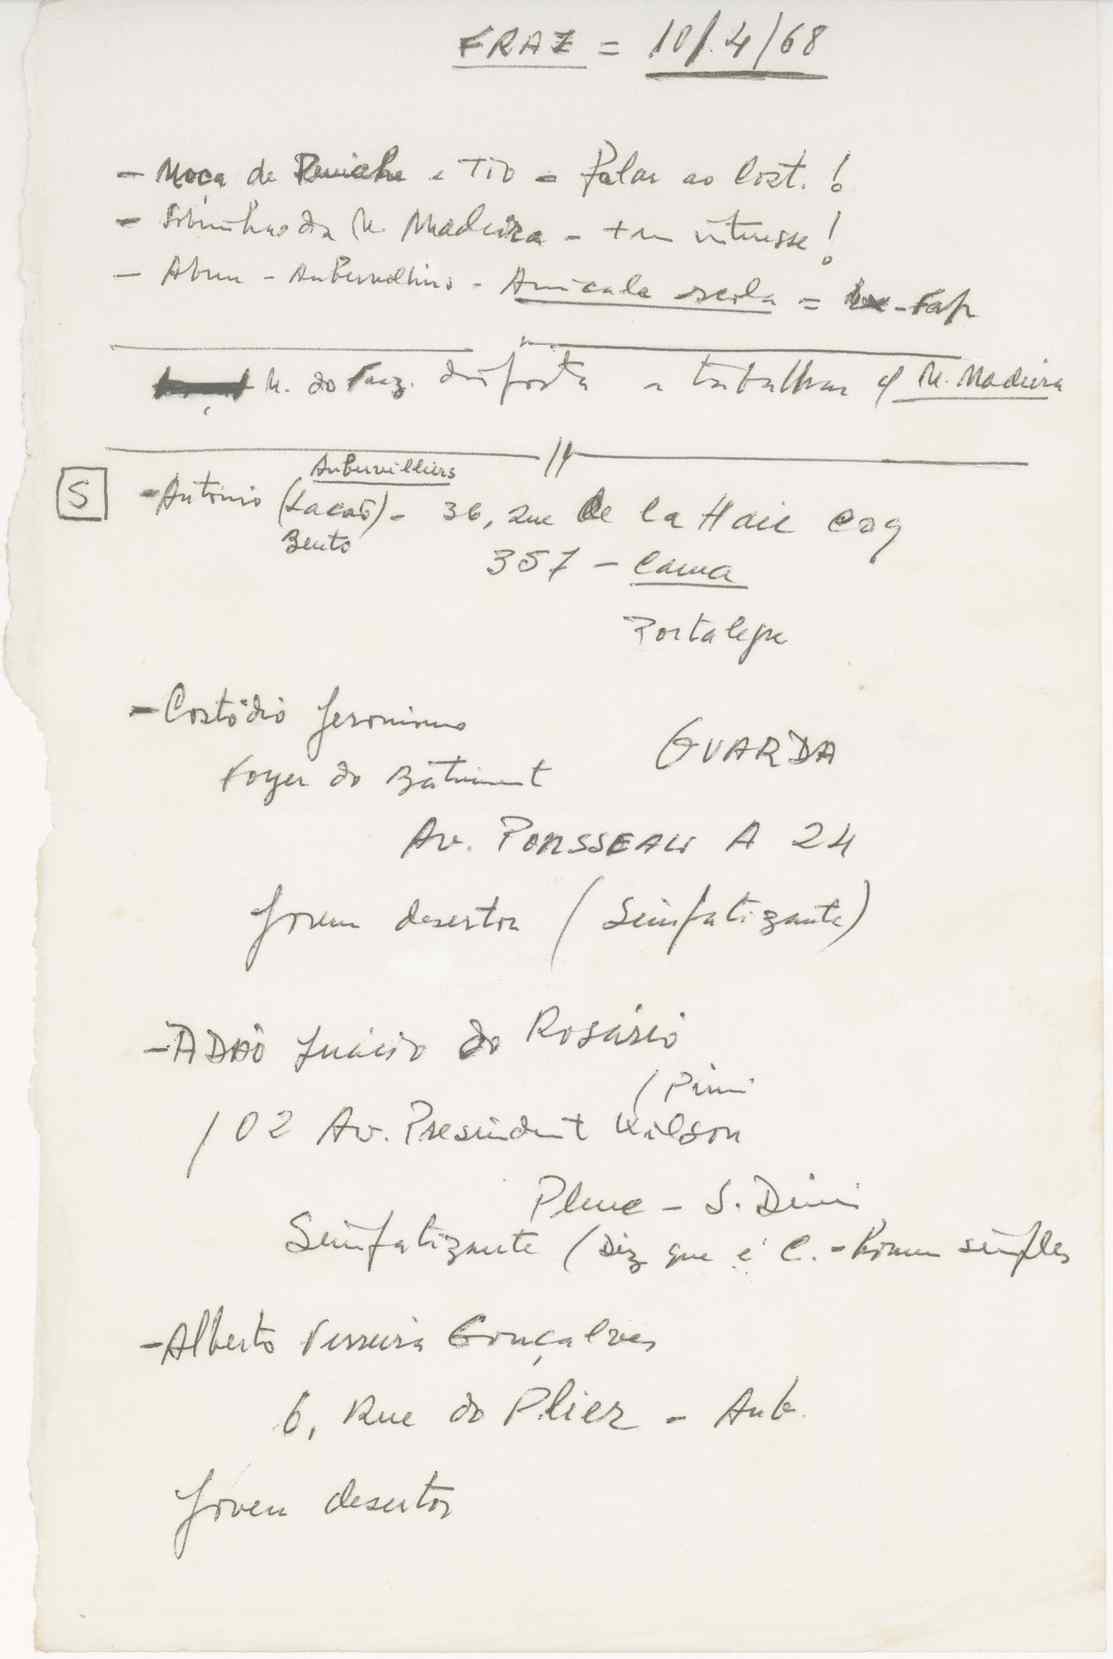 FRAZ = 10/.4/68
- Moça de Peniche e Tio = Falar ao Cost. !
- Sobrinho da M. Madeira - tem interesse !
- Abreu - - Amicale escola = - Fap
M. do Fraz. disposta a trabalhar c/ M. Madeira
//
Aubervilliers
S - António (Lacão) - 36, Rue de la Haie Coq
Bento
357 - Cama
Portalegre
- Costódio Jeronimo
GUARDA
Foyer do Bâtiment
Av. A 24
Jovem desertor (Simpatizante)
- ADÃO Inácio do Rosário
102 Av. Presindent Wilson
- S. Dini
Simpatizante (Diz que é C. - Homem simples
- Alberto Ferreira Gonçalves
6, Rue do Plier - Aub.
Jovem desertor